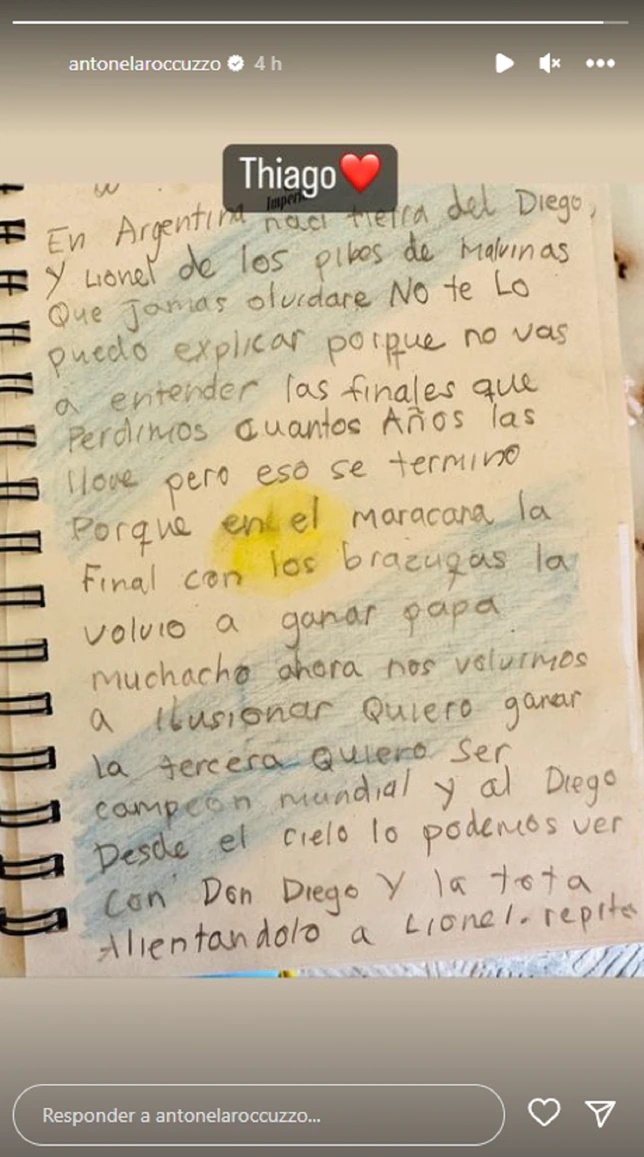 antonelaroccuzzo 4 h
Thiago❤️
En Argentina naci tierra del Diego,
y Lionel de los pibes de Malvinas
Que jamas olvidare No te Lo
puedo explicar porque no vas
a entender las finales que
Perdimos cuantos Años las
llore pero eso se termino
Porque en el maracana la
Final con los brazucas la
volvio a ganar papa
muchacho ahora nos volvimos
a ilusionar Quiero ganar
la tercera Quiero Ser
campeon mundial y al Diego
Desde el cielo lo podemos ver
con Don Diego y la tota
Alientandolo a Lionel. repite
Responder a antonelaroccuzzo...